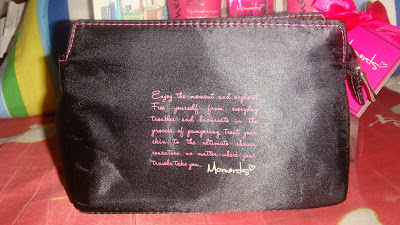 Enjoy the moment and explore!
Free yourself from everyday
troubles and luxuriate in the
process of pampering treat your
skin to the ultimate shower
sensation no matter where your
travels take you.
Moments
Moments